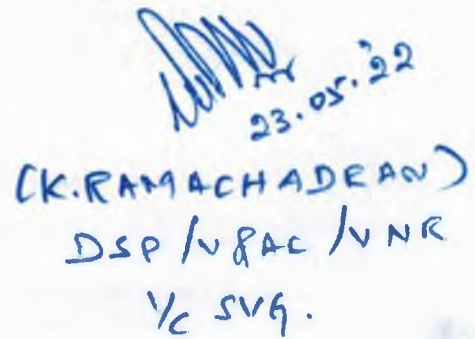 23.05.'22
(K.RAMACHADRAN)
DSP/V&AC/VNR
I/C SVG.